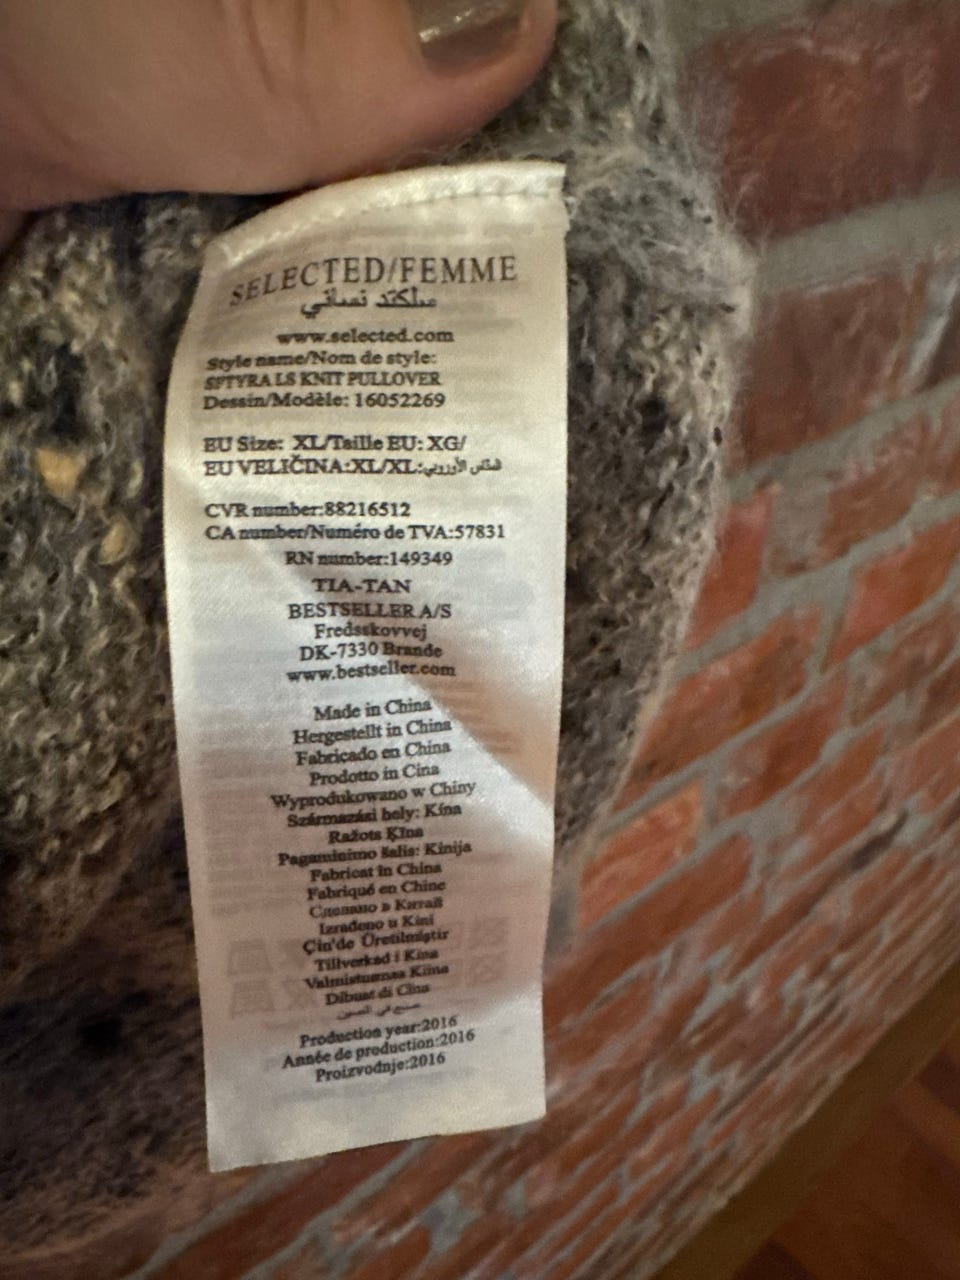 SELECTED/FEMME
سلكتد نسائي
www.selected.com
Style name/Nom de style:
SFTYRA LS KNIT PULLOVER
Dessin/Modèle: 16052269
EU Size: XL/Taille EU: XG/
EU VELIČINA:XL/XL:المقاس الأوروبي
CVR number:88216512
CA number/Numéro de TVA:57831
RN number:149349
TIA-TAN
BESTSELLER A/S
Fredsskovvej
DK-7330 Brande
www.bestseller.com
Made in China
Hergestellt in China
Fabricado en China
Prodotto in Cina
Wyprodukowano w Chiny
Származási hely: Kína
Ražots Ķīna
Pagaminimo šalis: Kinija
Fabricat în China
Fabriqué en Chine
Сделано в Китай
Izrađeno u Kini
Çin'de Üretilmiştir
Tillverkad i Kina
Valmistusmaa Kiina
Dibuat di Cina
صنع في الصين
Production year:2016
Année de production:2016
Proizvodnje:2016